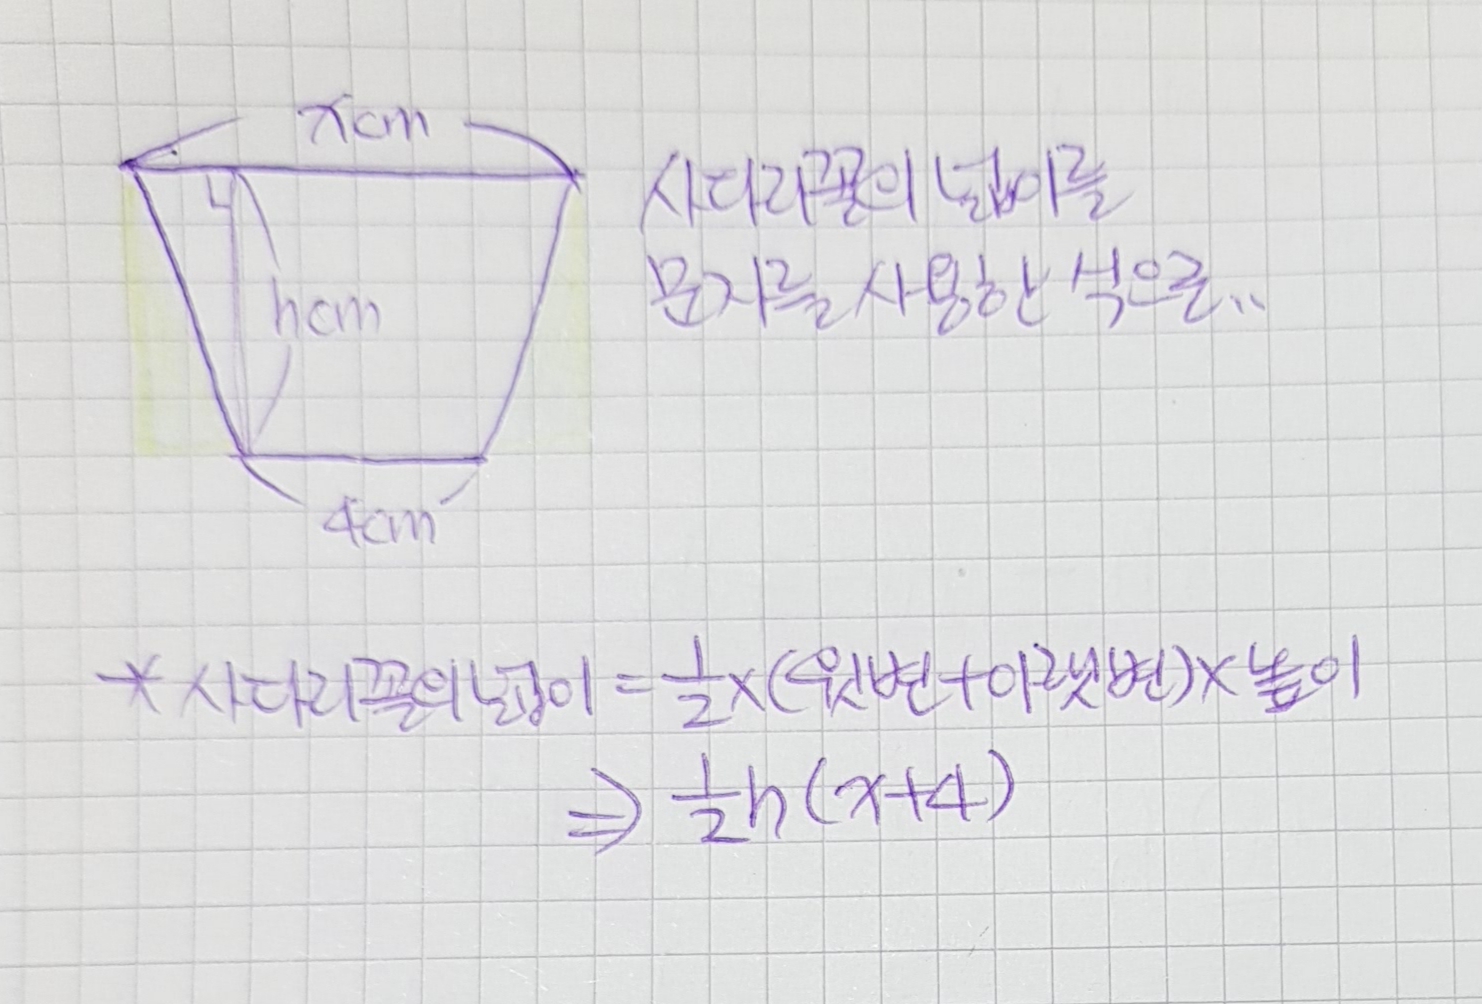 xcm
사다리꼴의 넓이를
문자를 사용한 식으로..
hcm
4cm
* 사다리꼴의 넓이 = 1/2 × (윗변+아랫변) × 높이
⇒ 1/2 h (x+4)